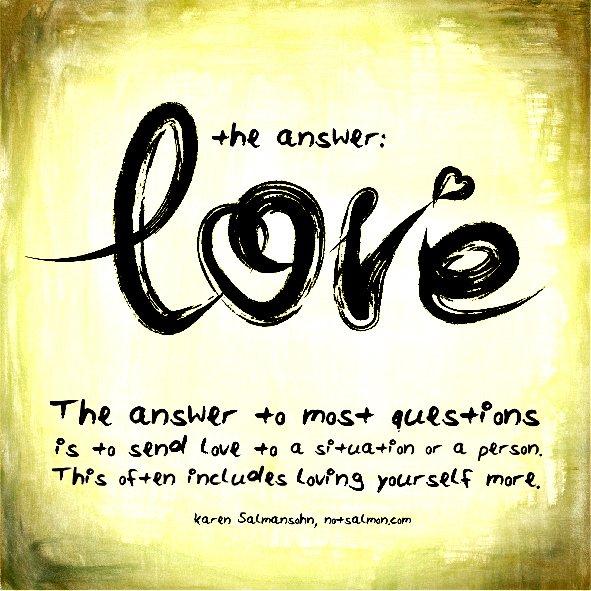 the answer:
love
The answer to most questions
is to send love to a situation or a person.
This often includes loving yourself more.
Karen Salmansohn, notsalmon.com